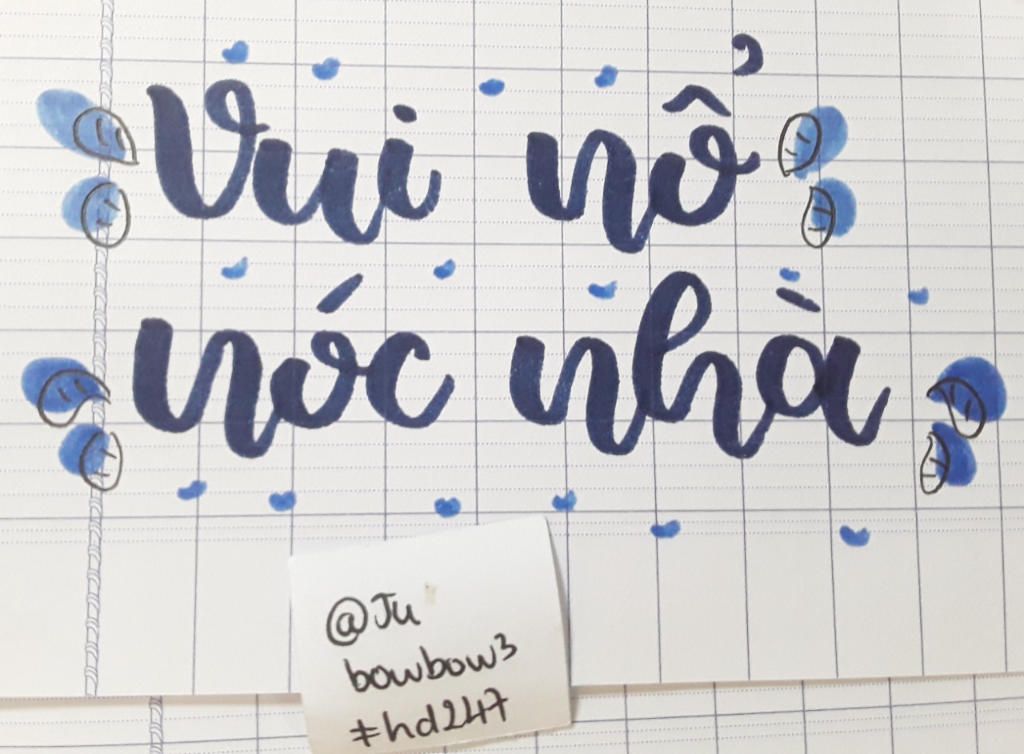 Vui nổ
nóc nhà
@Ju
bowbow3
#hd247